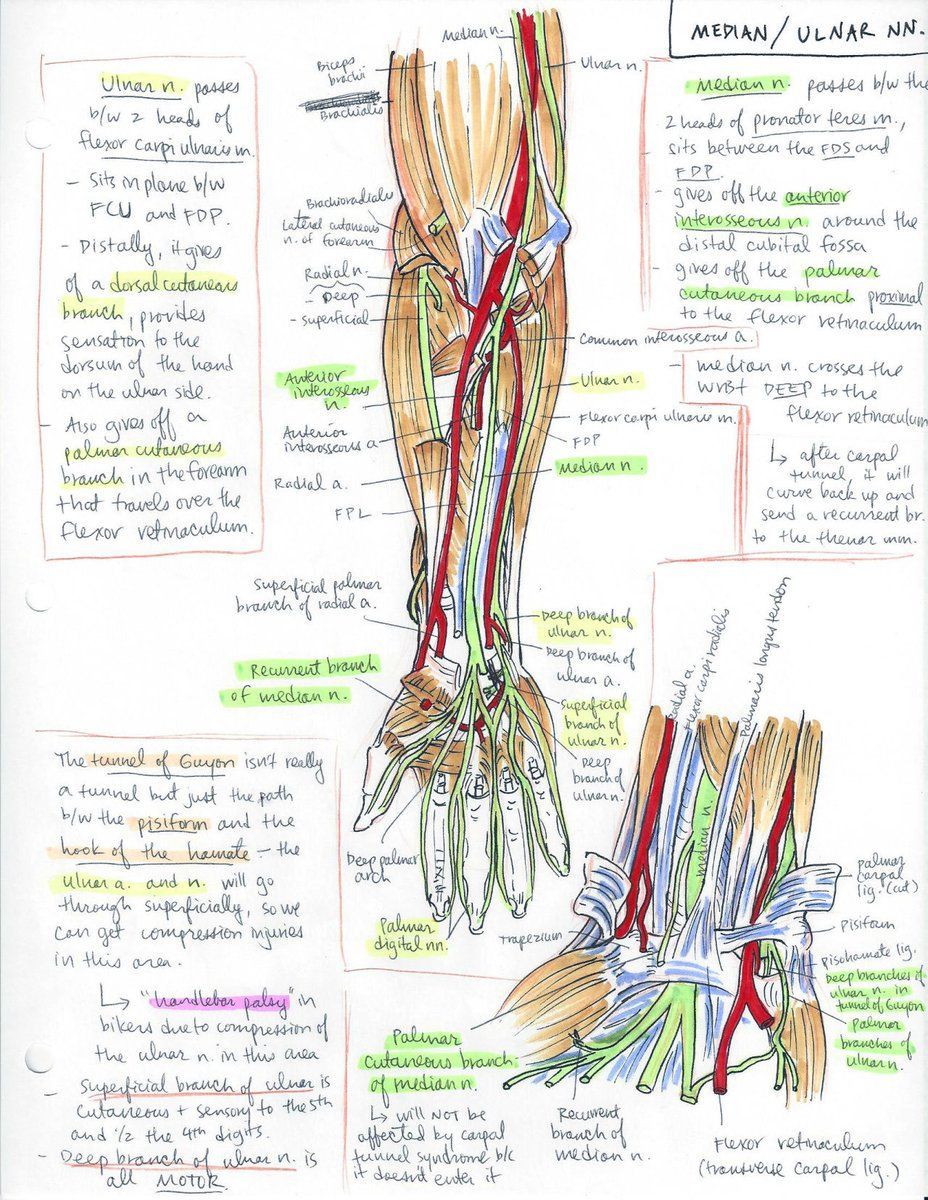 MEDIAN/ULNAR NN.
Ulnar n. passes
b/w 2 heads of
flexor carpi ulnaris m.
- Sits in plane b/w
FCU and FDP.
- Distally, it gives
of a dorsal cutaneous
branch, provides
sensation to the
dorsum of the hand
on the ulnar side.
- Also gives off a
palmar cutaneous
branch in the forearm
that travels over the
flexor retinaculum.
Median n.
Ulnar n.
Biceps
brachii
Brachialis
Brachioradialis
Lateral cutaneous
n. of forearm
Radial n.
- Deep
- superficial
Anterior
interosseous
n.
Anterior
interosseous a
Radial a.
FPL
Superficial palmar
branch of radial a.
Recurrent branch
of median n.
Common interosseous a.
Ulnar n.
Flexor carpi ulnaris m.
FDP
median n.
Deep branch of
ulnar n.
Deep branch of
ulnar a.
Superficial
branch of
ulnar n.
Deep
branch of
ulnar n.
Deep palmar
arch
Palmar
digital nn.
Median n. passes b/w the
2 heads of pronator teres m.,
sits between the FDS and
FDP.
- gives off the anterior
interosseous n. around the
distal cubital fossa
- gives off the palmar
cutaneous branch proximal
to the flexor retinaculum
- median n. crosses the
wrist DEEP to the
flexor retinaculum
↳ after carpal
tunnel, it will
curve back up and
send a recurrent br.
to the thenar mm.
The tunnel of Guyon isn't really
a tunnel but just the path
b/w the pisiform and the
hook of the hamate - the
ulnar a. and n. will go
through superficially, so we
can get compression injuries
in this area.
↳ "handlebar palsy" in
bikers due to compression of
the ulnar n. in this area
- Superficial branch of ulnar is
cutaneous + sensory to the 5th
and 1/2 the 4th digits.
- Deep branch of ulnar n. is
all MOTOR.
Radial a.
Flexor carpi radialis
Palmaris longus tendon
median n.
Trapezium
palmar
carpal
lig. (cut)
Pisiform
pisohamate lig.
Deep branches of
ulnar n. in
tunnel of Guyon
Palmar
branches of
ulnar n.
Palmar
cutaneous branch
of median n.
↳ will NOT be
affected by carpal
tunnel syndrome b/c
it doesn't enter it
Recurrent
branch of
median n.
Flexor retinaculum
(transverse carpal lig.)